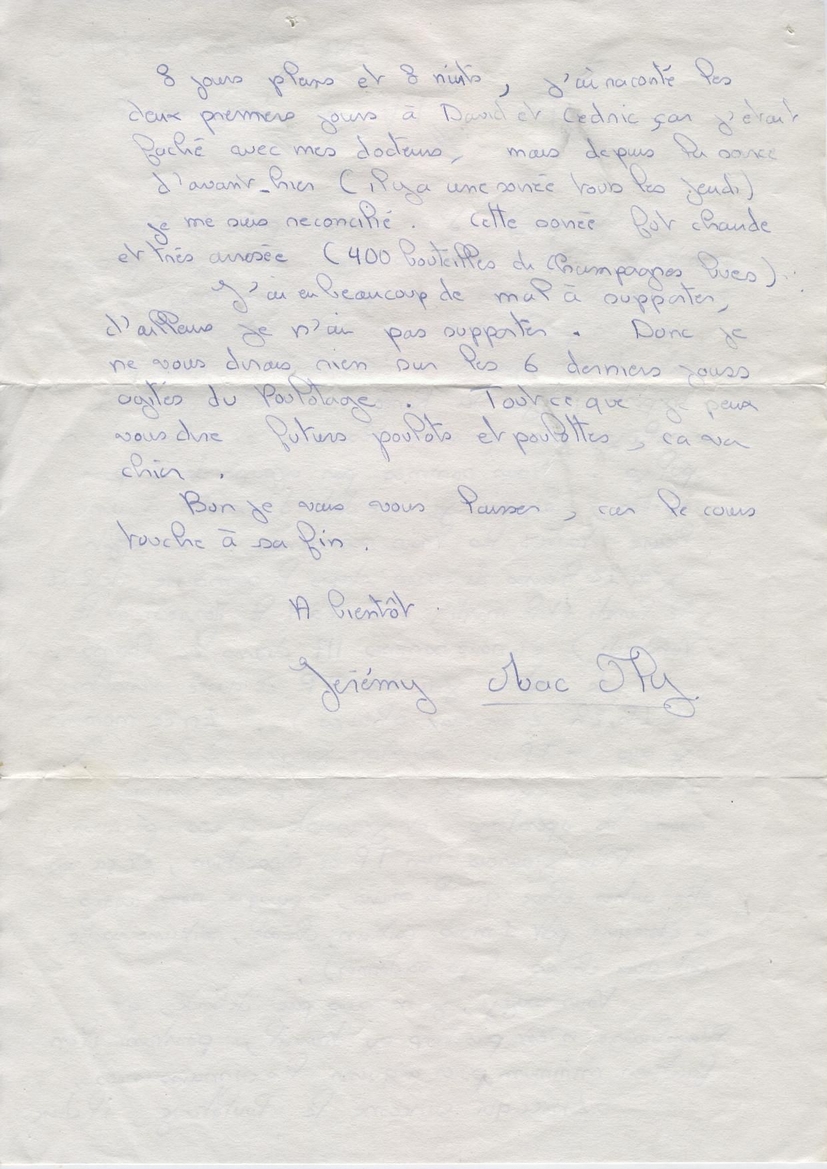 8 jours plans et 8 nuits, j'ai raconté les
deux premiers jours à David et Cedric car j'étais
faché avec mes docteurs, mais depuis la soirée
d'avant-hier (il y a une soirée tous les jeudi)
je me suis reconcilié. Cette soirée fut chaude
et très arrosée (400 bouteilles de Champagnes bues).
J'ai eu beaucoup de mal à supporter,
d'ailleurs je n'ai pas supporter. Donc je
ne vous dirais rien sur les 6 derniers jours
agités du Poulotage. Tout ce que je peux
vous dire futurs poulots et poulottes, ca va
chier.
Bon je vais vous laisser, car le cours
touche à sa fin.
A bientôt.
Jérémy Mac